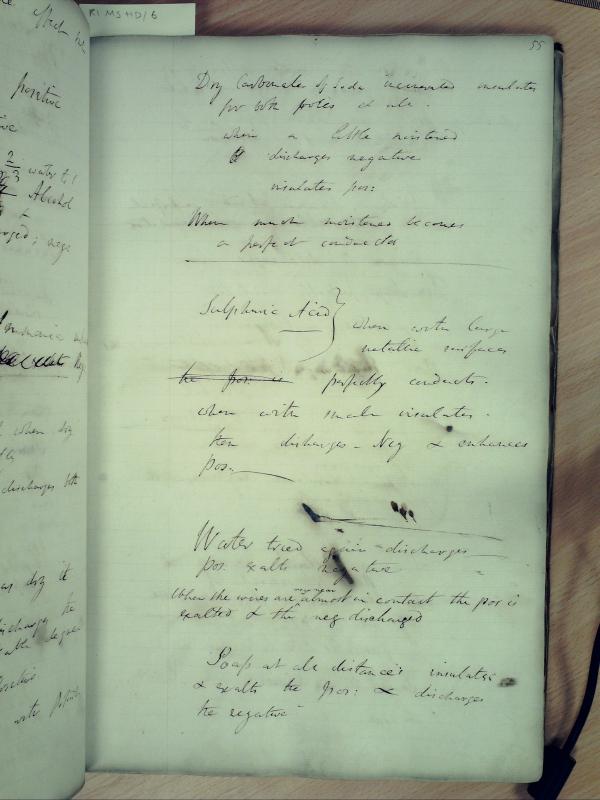 RI MS HD/6
55
Dry Carbonate of Soda incinerated insulates
for both poles et ale.
when a little moistened
discharges negative
insulates pos:
When much moistened becomes
a perfect conductor
Sulphuric Acid } when with large
metallic surfaces
the pos: is perfectly conducts.
when with small insulates.
then discharges - Neg & enhances
pos.
Water tried again discharges
pos. exalts negative
When the wires are very near almost in contact the pos is
exalted & the neg discharged
Soap at ale distances insulates
& exalts the pos: & discharges
the negative
positive
water
Alcohol
neg
when dry
discharges both
dry it
discharges the
with